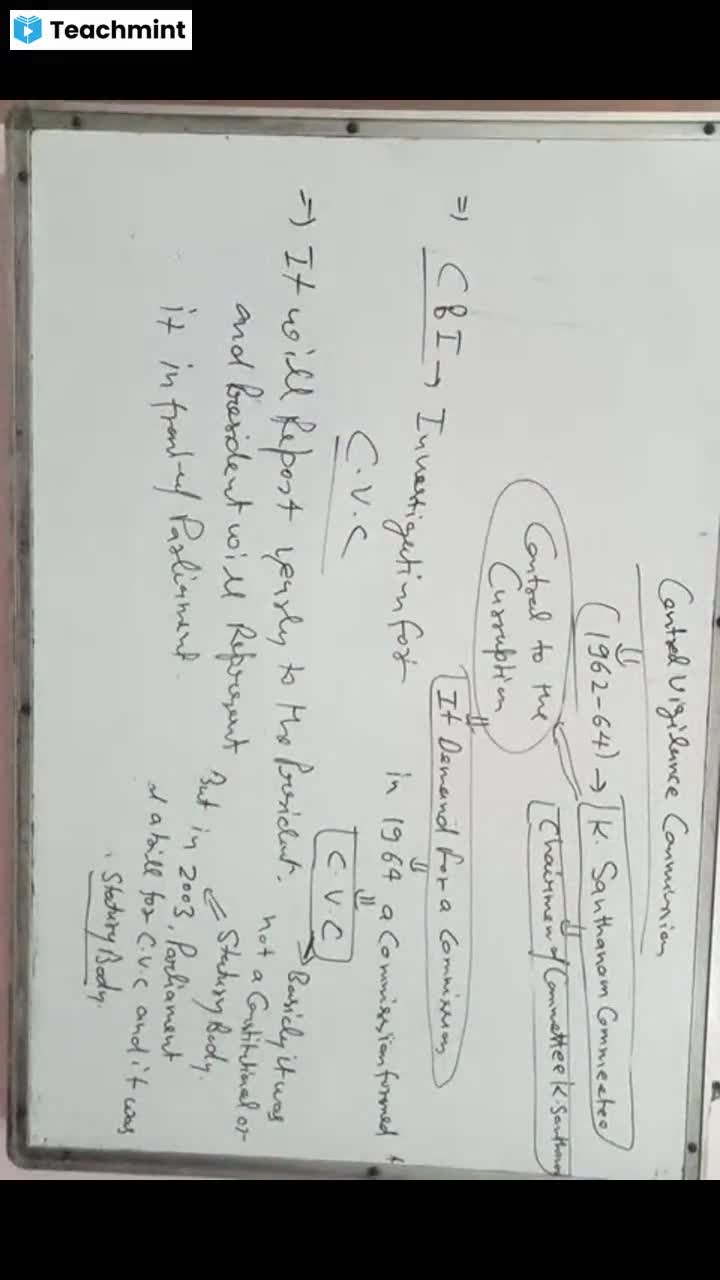 Teachmint
Central Vigilence Commission
(1962-64) → K. Santhanam Commeetee
Control to the
Curruption
Chairmen of Commettee K. Santhanam
It Demand for a Commission
⇒ CBI → Investigation for
in 1964 a Commission formed
C.V.C
C.V.C
⇒ It will Report yearly to the President.
and President will Represent
it in front of Parliament.
Basicly it was
not a Constitutional or
Stetury Body.
But in 2003, Parliament
a bill for C.V.C and it was
Stetury Body.